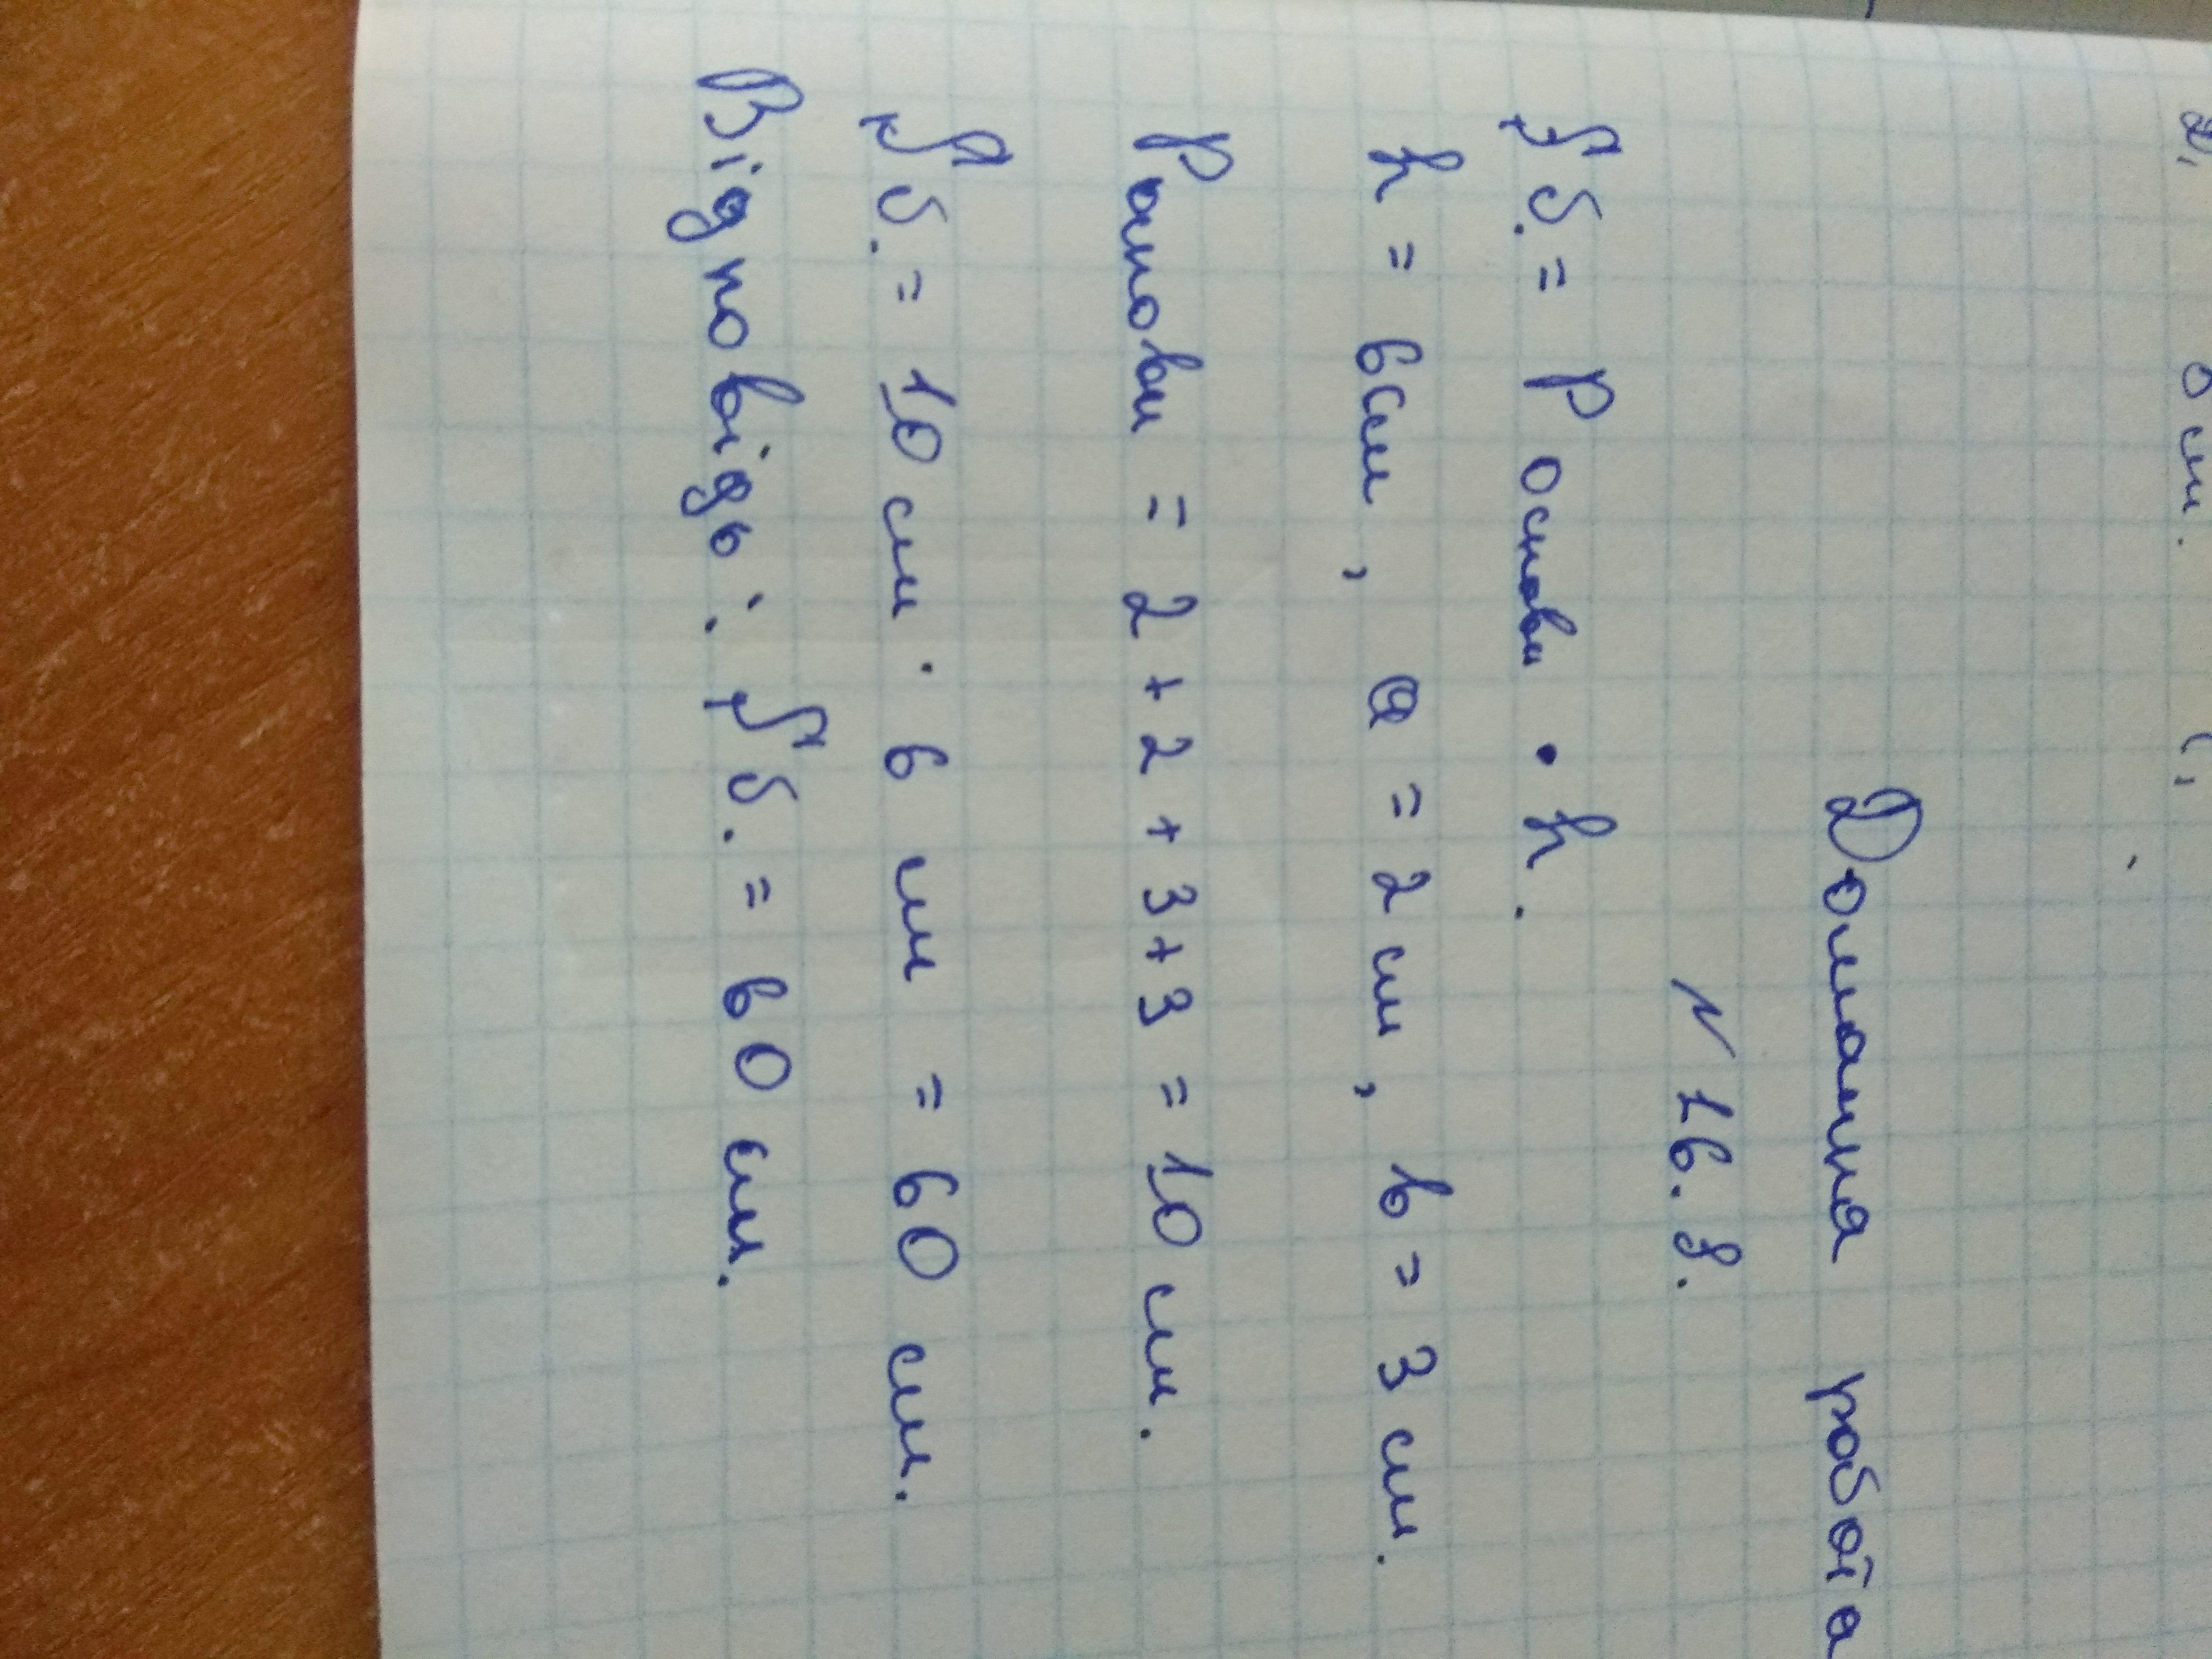 Домашня робота
N 16.8.
Sб. = P основи · h.
h = 6см, a = 2 см, b = 3 см.
Pоснови = 2 + 2 + 3 + 3 = 10 см.
Sб. = 10 см · 6 см = 60 см.
Відповідь: Sб. = 60 см.